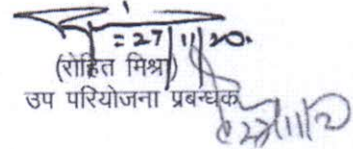 27/11/20.
(रोहित मिश्रा)
उप परियोजना प्रबन्धक